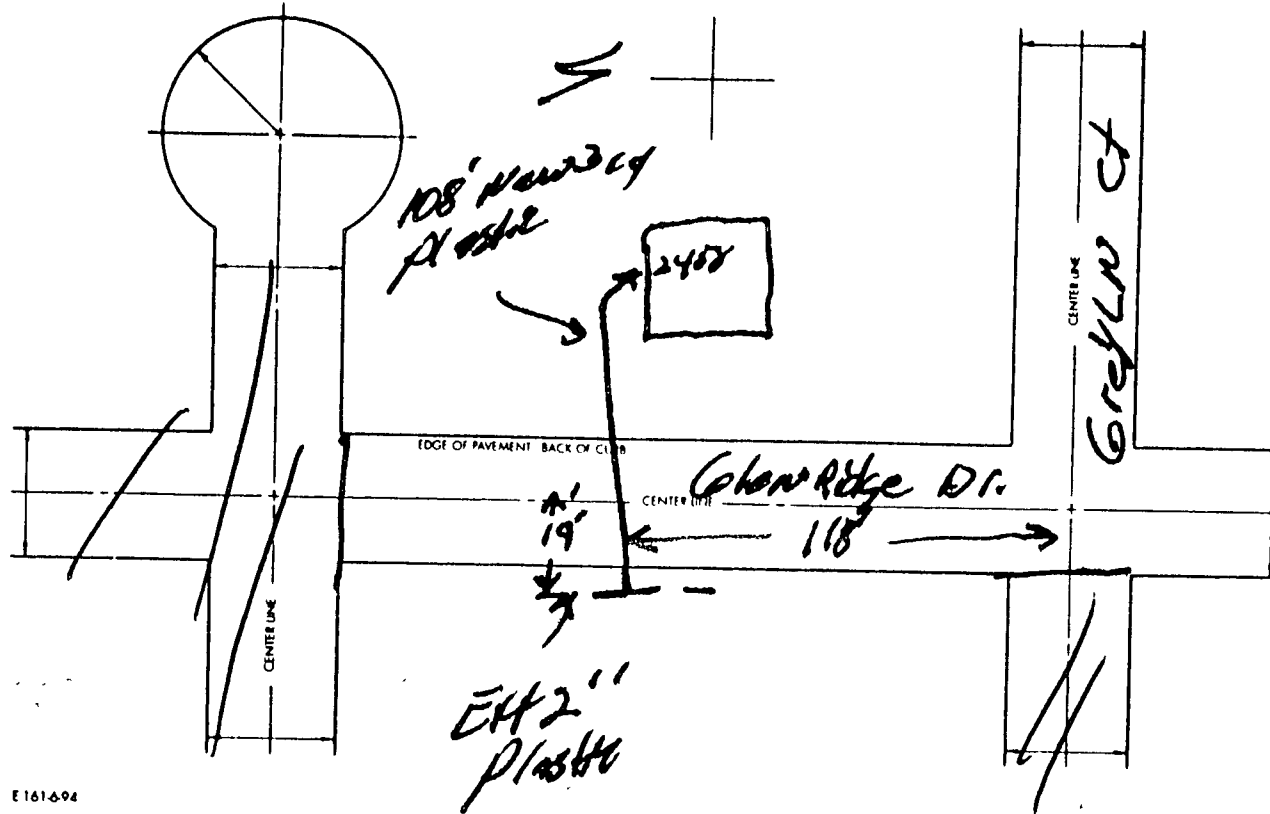 108' New 3/4
Plastic
2458
GreyLN Ct
CENTER LINE
EDGE OF PAVEMENT BACK OF CURB
GlenRidge Dr.
CENTER LINE
19'
118'
CENTER LINE
2"
Plastic
E 161-6-94